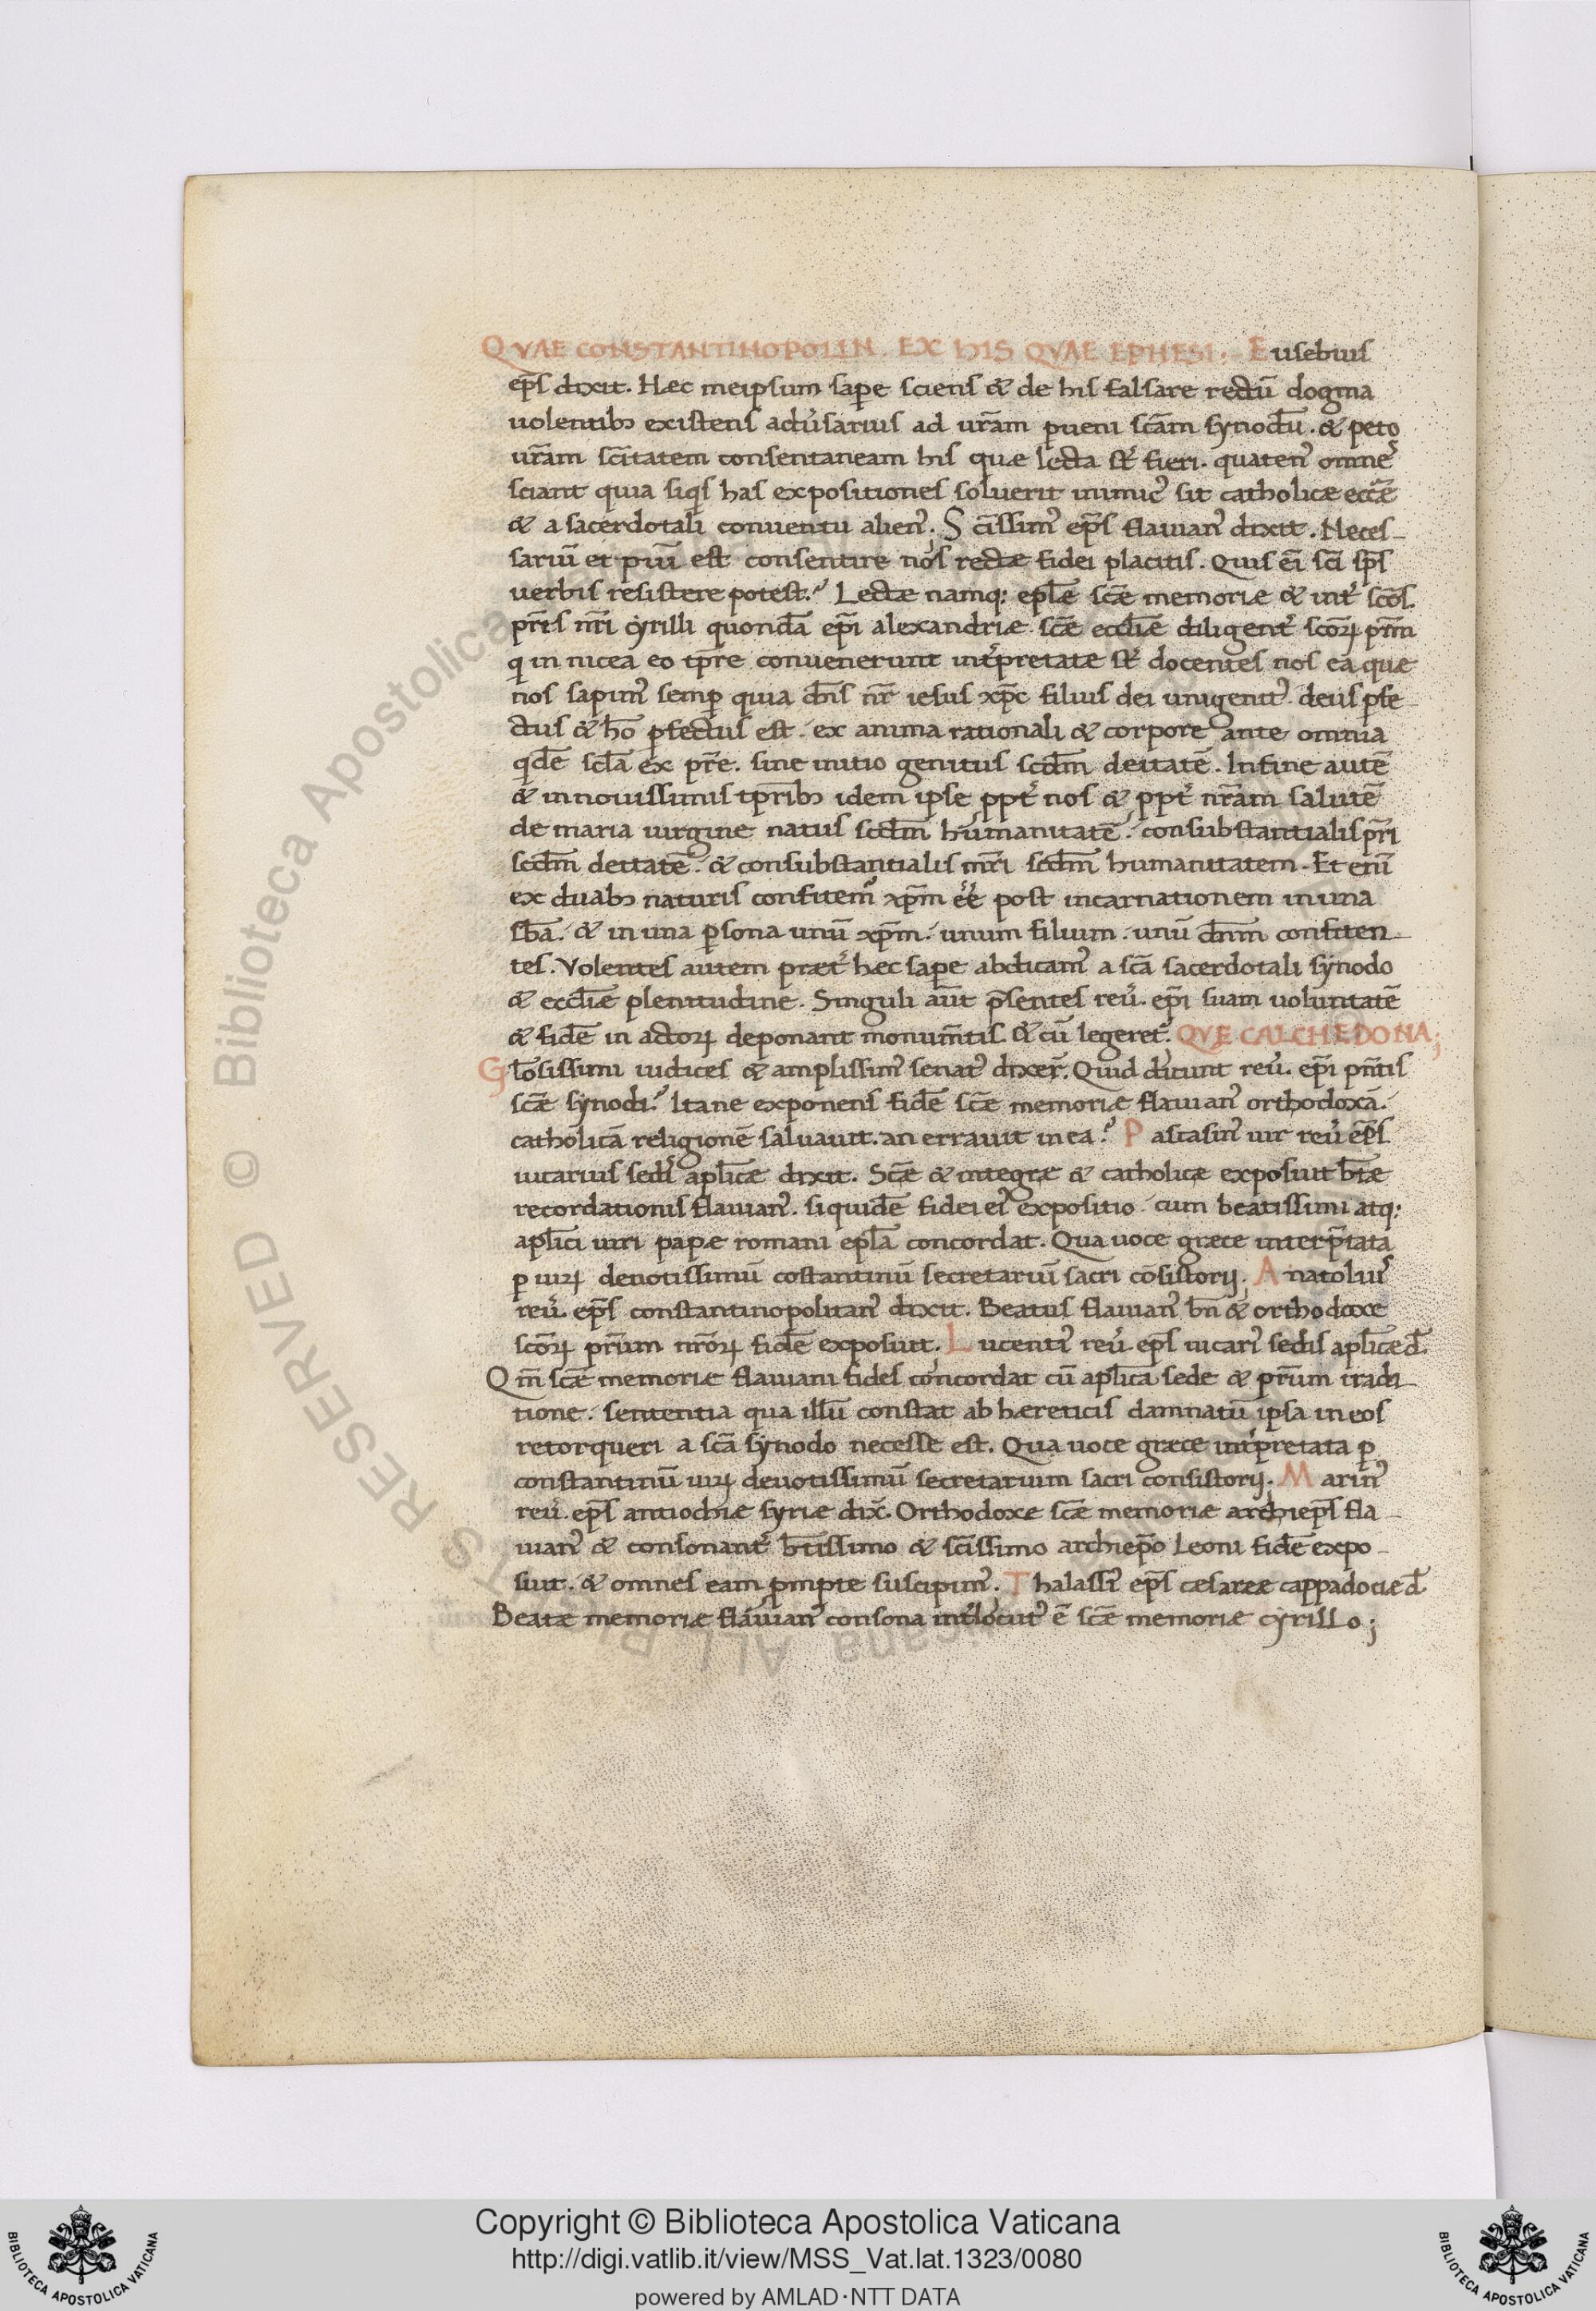 QVAE CONSTANTINOPOLIN. EX HIS QVAE EPHESI. Eusebius
ep̄s dixit. Hec meipsum sapere sciens & de his falsare rectū dogma
uolentibꝫ existens aduersarius ad ur̄am ꝑueni sc̄am synodū. & peto
ur̄am sc̄itatem consentaneam his quæ lecta st̄ fieri. quaten᾽ omnes
sciant quia siqͥs has expositiones soluerit inimic᾽ sit catholicæ eccl̄æ
& a sacerdotali conuentu alien᾽. Sc̄issim᾽ ep̄s flauian᾽ dixit. Neces-
sariū et piū est consentire nos rectæ fidei placitis. Quis ei̅ sc̄i sp̄s
uerbis resistere potest? Lectæ namq: epl̄æ sc̄æ memoriæ & int᾽ sc̄os.
pr̄es nr̄i cyrilli quondā ep̄i alexandriæ sc̄æ eccl̄iæ diligent᾽ sc̄oꝝ pr̄m
qͥ in nicea eo tp̄re conuenerunt int᾽pretate st̄ docentes nos ea quæ
nos sapim᾽ semꝑ quia dn̄s nr̄ iesus xp̄c filius dei unigenit᾽ deus ꝑfe-
ctus & hō ꝑfectus est. ex anima rationali & corpore ante omnia
qͥdē scl̄a ex pr̄e. sine initio genitus scd̄m deitatē. In fine autē
& in nouissimis tp̄ribꝫ idem ipse ꝓpt᾽ nos & ꝓpt᾽ nr̄am salutē
de maria uirgine natus scd̄m humanitatē. consubstantialis pr̄i
scd̄m deitatē. & consubstantialis mr̄i scd̄m humanitatem. Et eni̅
ex duabꝫ naturis confitem᾽ xp̄m ee̅ post incarnationem in una
sb̄a. & in una ꝑsona unū xp̄m. unum filium. unū dn̄m confiten-
tes. Volentes autem præt᾽ hec sapere abdicam᾽ a sc̄a sacerdotali synodo
& eccl̄iæ plenitudine. Singuli aūt p̄sentes reu᾽. ep̄i suam uoluntatē
& fidē in actoꝝ deponant monum̄tis. & cū legeret᾽. QVE CALCHEDONA;
Gl̄osissimi iudices & amplissim᾽ senat᾽ dixer̄. Quid dicunt reu᾽. ep̄i pn̄tis
sc̄æ synodi? Itane exponens fidē sc̄æ memoriæ flauian᾽ orthodoxā.
catholicā religionē saluauit. an errauit in ea? Pascasin᾽ uir reu᾽ ep̄s
uicarius sedis apl̄icæ dixit. Sc̄æ & integræ & catholicæ exposuit bt̄æ
recordationis flauian᾽. siquidē fidei ei᾽ expositio cum beatissimi atq:
apl̄ici uiri papæ romani epl̄a concordat. Qua uoce græce interp̄tata
ꝑ uiꝝ deuotissimū costantinū secretariū sacri cōsistorij. Anatolius
reu᾽. ep̄s constantinopolitan᾽ dixit. Beatus flauian᾽ bn̄ & orthodoxe
sc̄oꝝ pr̄um nr̄oꝝ fidē exposuit. Lucenti᾽ reu᾽. ep̄s uicari᾽ sedis apl̄icæ d̄.
Qm̄ sc̄æ memoriæ flauiani fides concordat cū apl̄ica sede & pr̄um tradi-
tione. sententia qua illū constat ab hæreticis damnatū ipsa in eos
retorqueri a sc̄a synodo necesse est. Qua uoce græce int᾽pretata ꝑ
constantinū uiꝝ deuotissimū secretarium sacri consistorij. Marin᾽
reu᾽. ep̄s antiochiæ syriæ dix̄. Orthodoxe sc̄æ memoriæ archiep̄s fla-
uian᾽ & consonant᾽ bt̄issimo & sc̄issimo archiep̄o Leoni fidē expo-
suit. & omnes eam ꝓmpte suscipim᾽. Thalassi᾽ ep̄s cæsareæ cappadociæ d̄.
Beatæ memoriæ flauian᾽ consona int᾽locut᾽ ē sc̄æ memoriæ cyrillo;
Biblioteca Apostolica Vaticana ALL RIGHTS RESERVED ©
Copyright © Biblioteca Apostolica Vaticana
http://digi.vatlib.it/view/MSS_Vat.lat.1323/0080
powered by AMLAD·NTT DATA
BIBLIOTECA APOSTOLICA VATICANA
BIBLIOTECA APOSTOLICA VATICANA